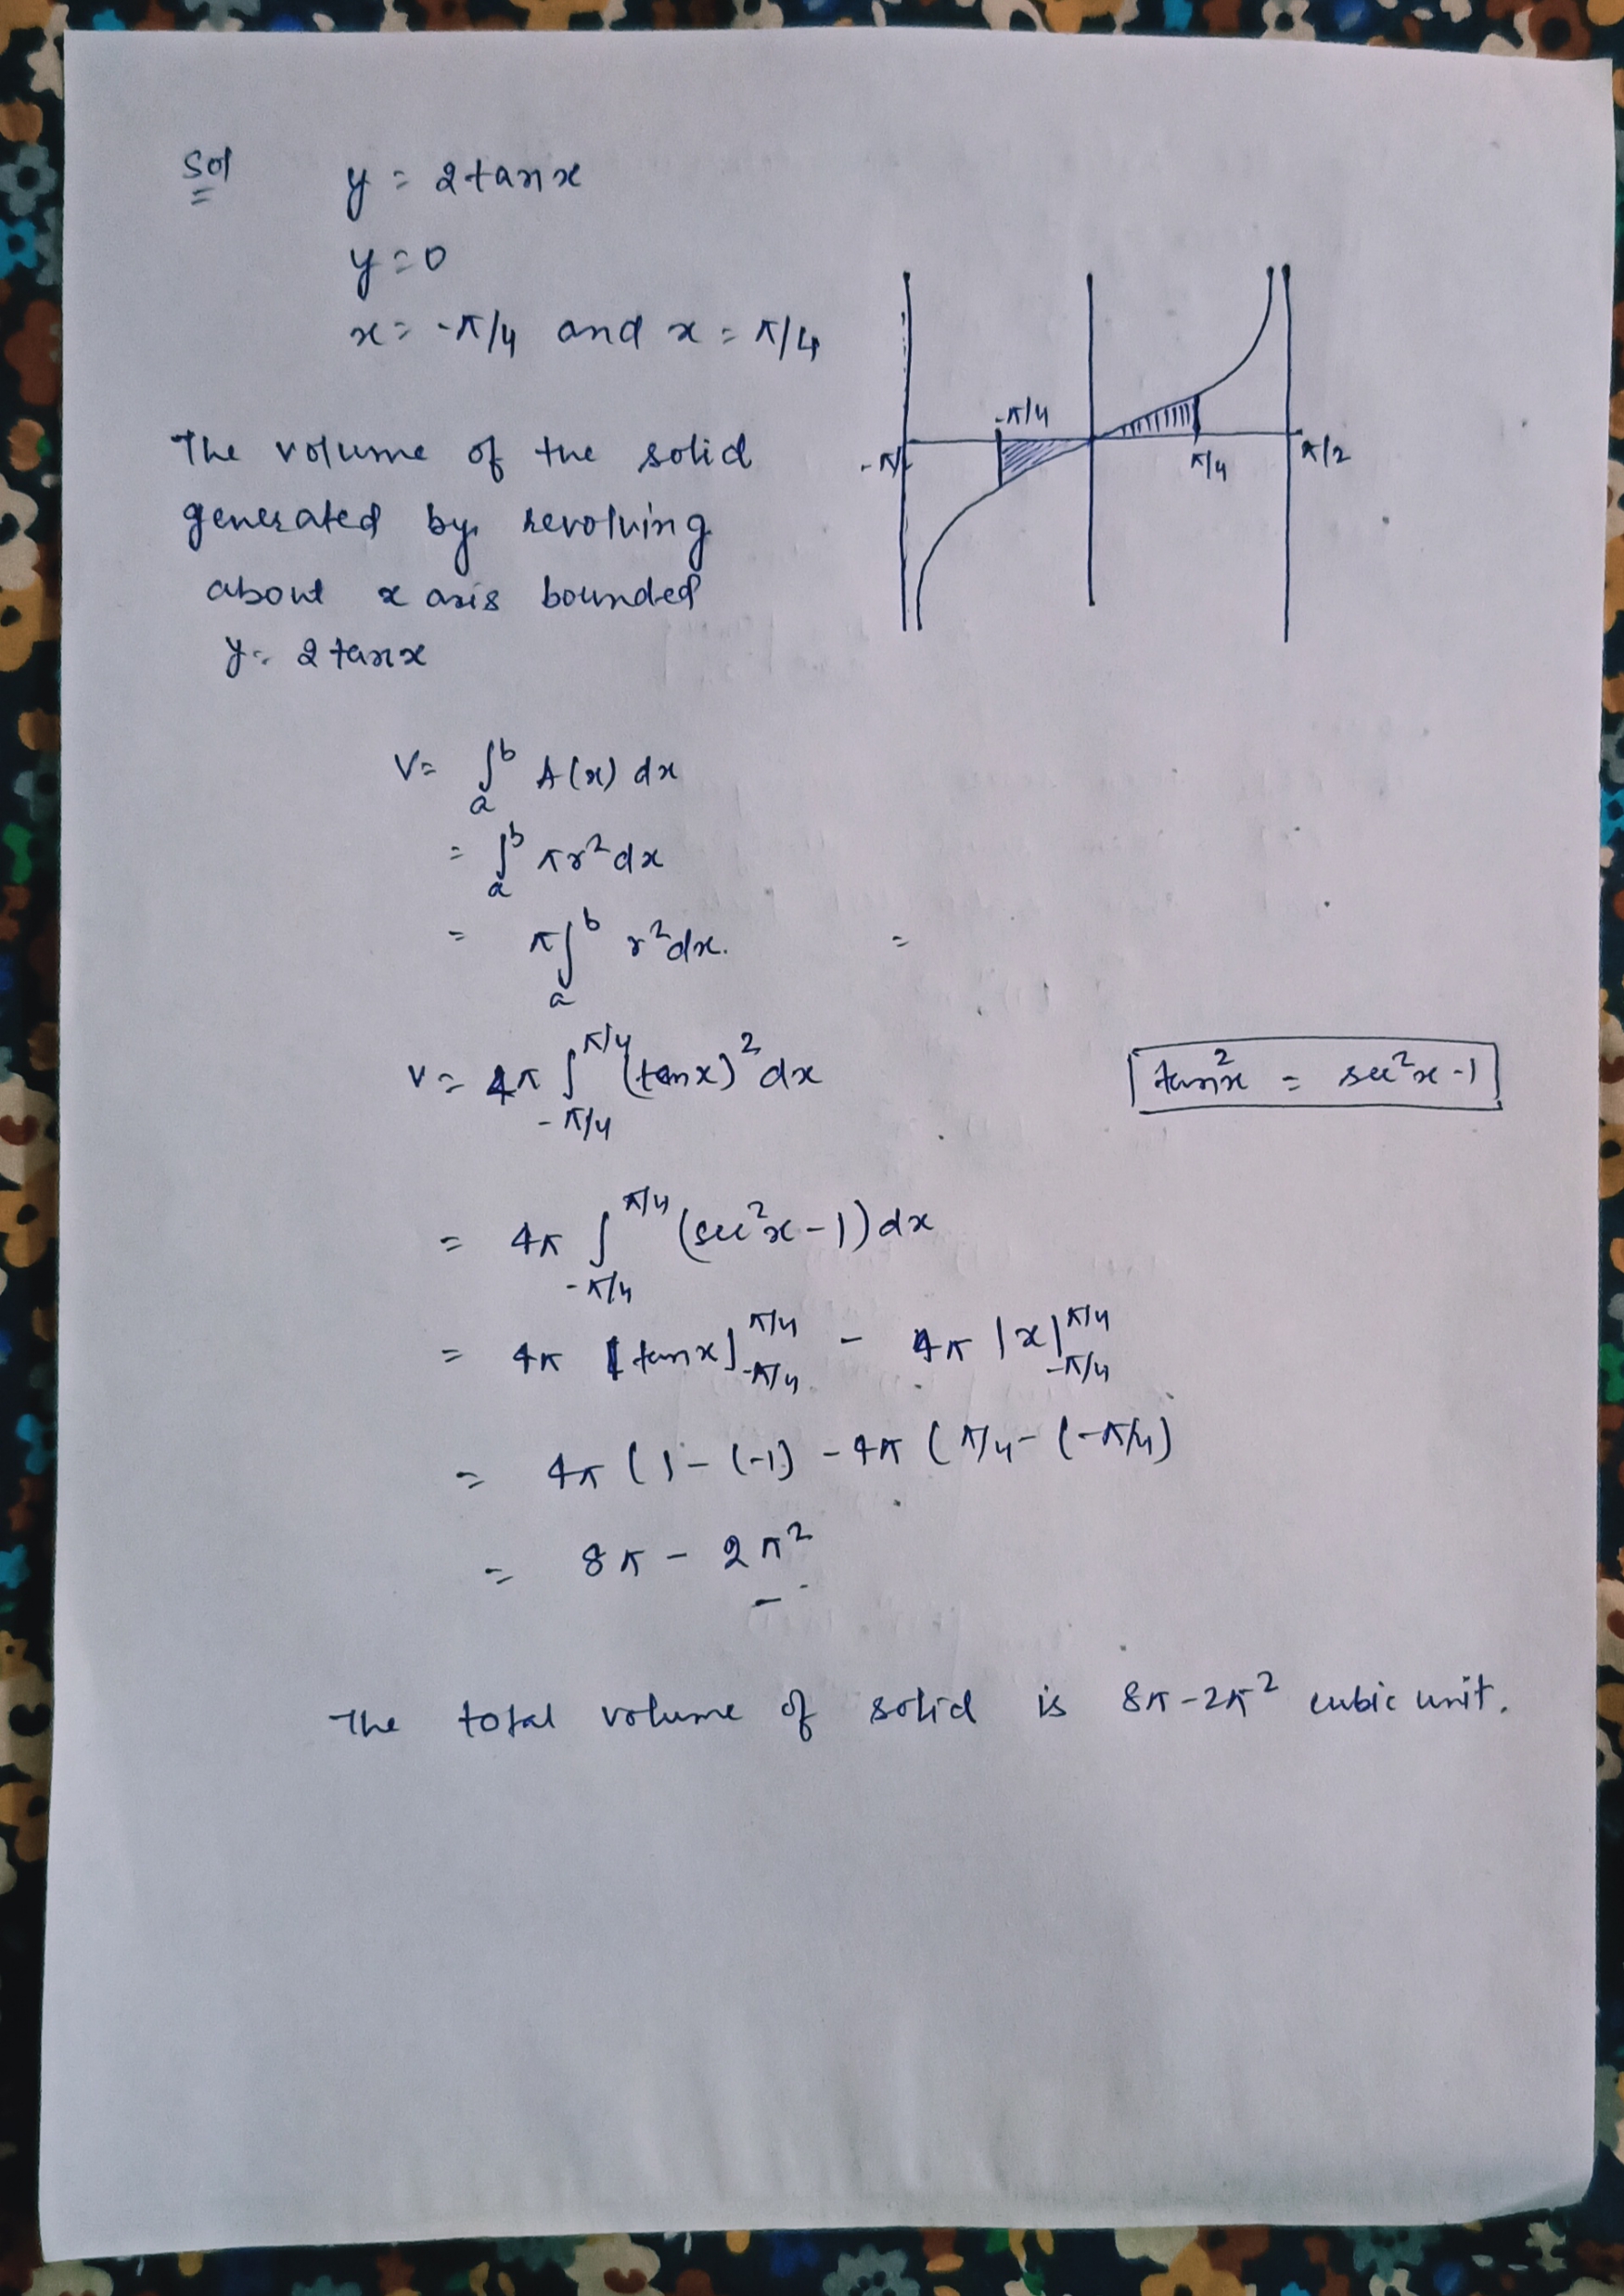 Sol
y = 2tanx
y=0
x= -π/4 and x = π/4
-π/4
π/4
π/2
The volume of the solid
generated by revolving
about x axis bounded
y= 2tanx
V= ∫ₐᵇ A(x) dx
= ∫ₐᵇ πr²dx
= π∫ₐᵇ r²dx. =
V= 4π ∫_{-π/4}^{π/4} (tanx)² dx
tan²x = sec²x-1
= 4π ∫_{-π/4}^{π/4} (sec²x-1)dx
= 4π [tanx]_{-π/4}^{π/4} - 4π |x|_{-π/4}^{π/4}
= 4π (1-(-1) - 4π (π/4-(-π/4)
= 8π - 2π²
The total volume of solid is 8π-2π² cubic unit.